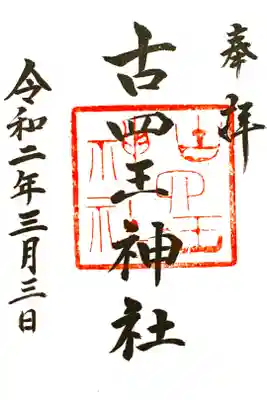 奉拝
古四王神社
古四王
神社
令和二年三月三日